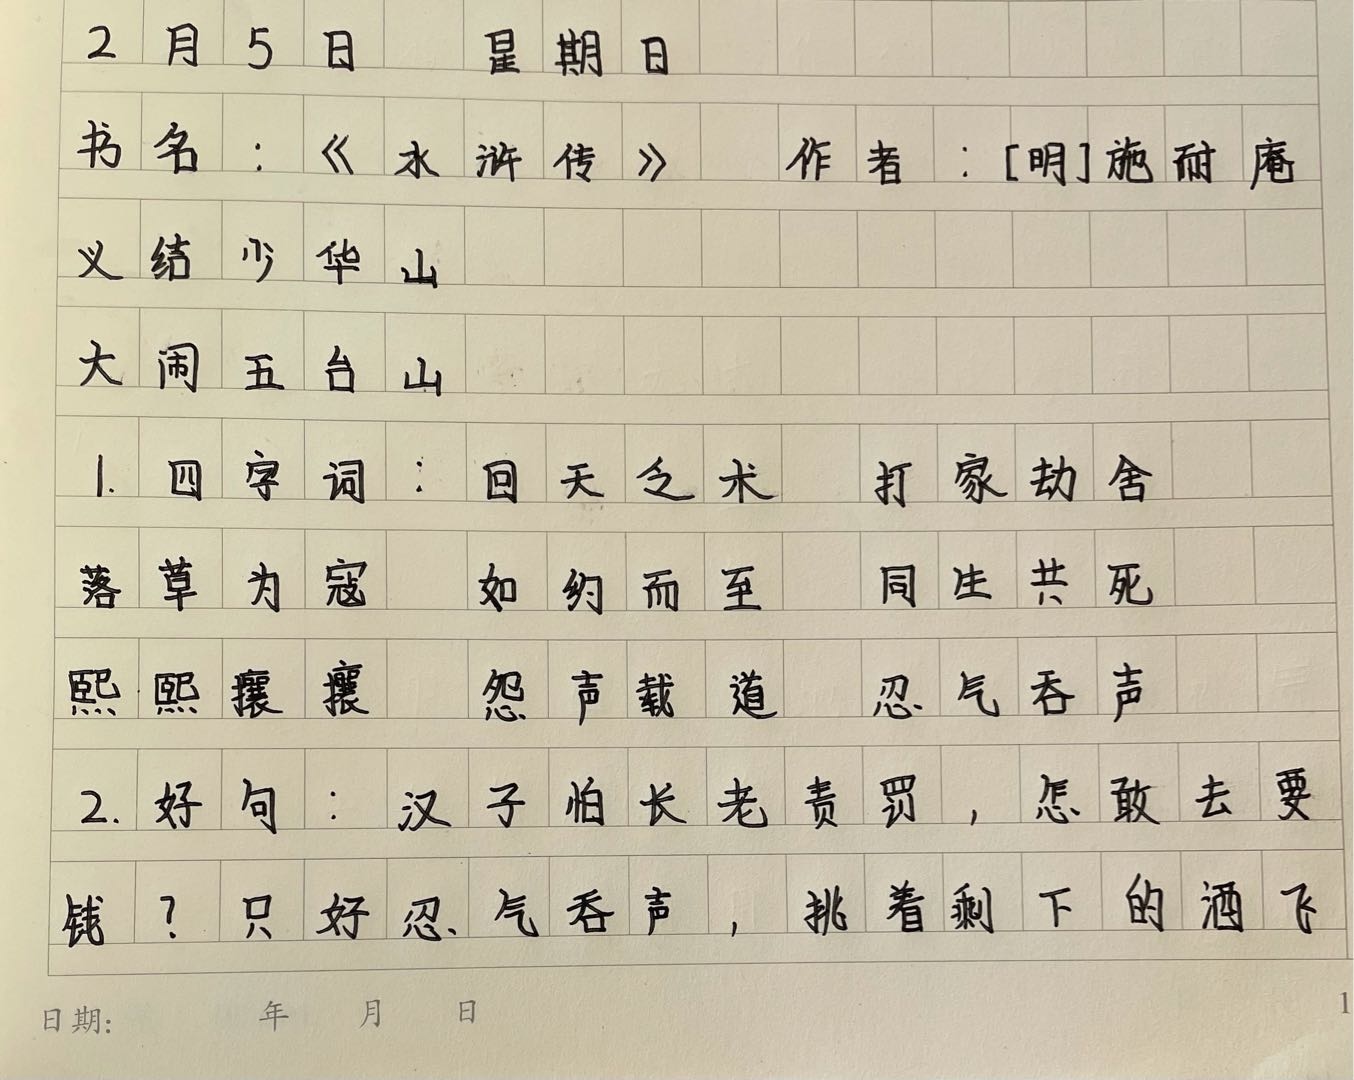 2月5日 星期日
书名：《水浒传》 作者：[明]施耐庵
义结少华山
大闹五台山
1.四字词：回天乏术 打家劫舍
落草为寇 如约而至 同生共死
熙熙攘攘 怨声载道 忍气吞声
2.好句：汉子怕长老责罚，怎敢去要
钱？只好忍气吞声，挑着剩下的酒飞
日期： 年 月 日 1